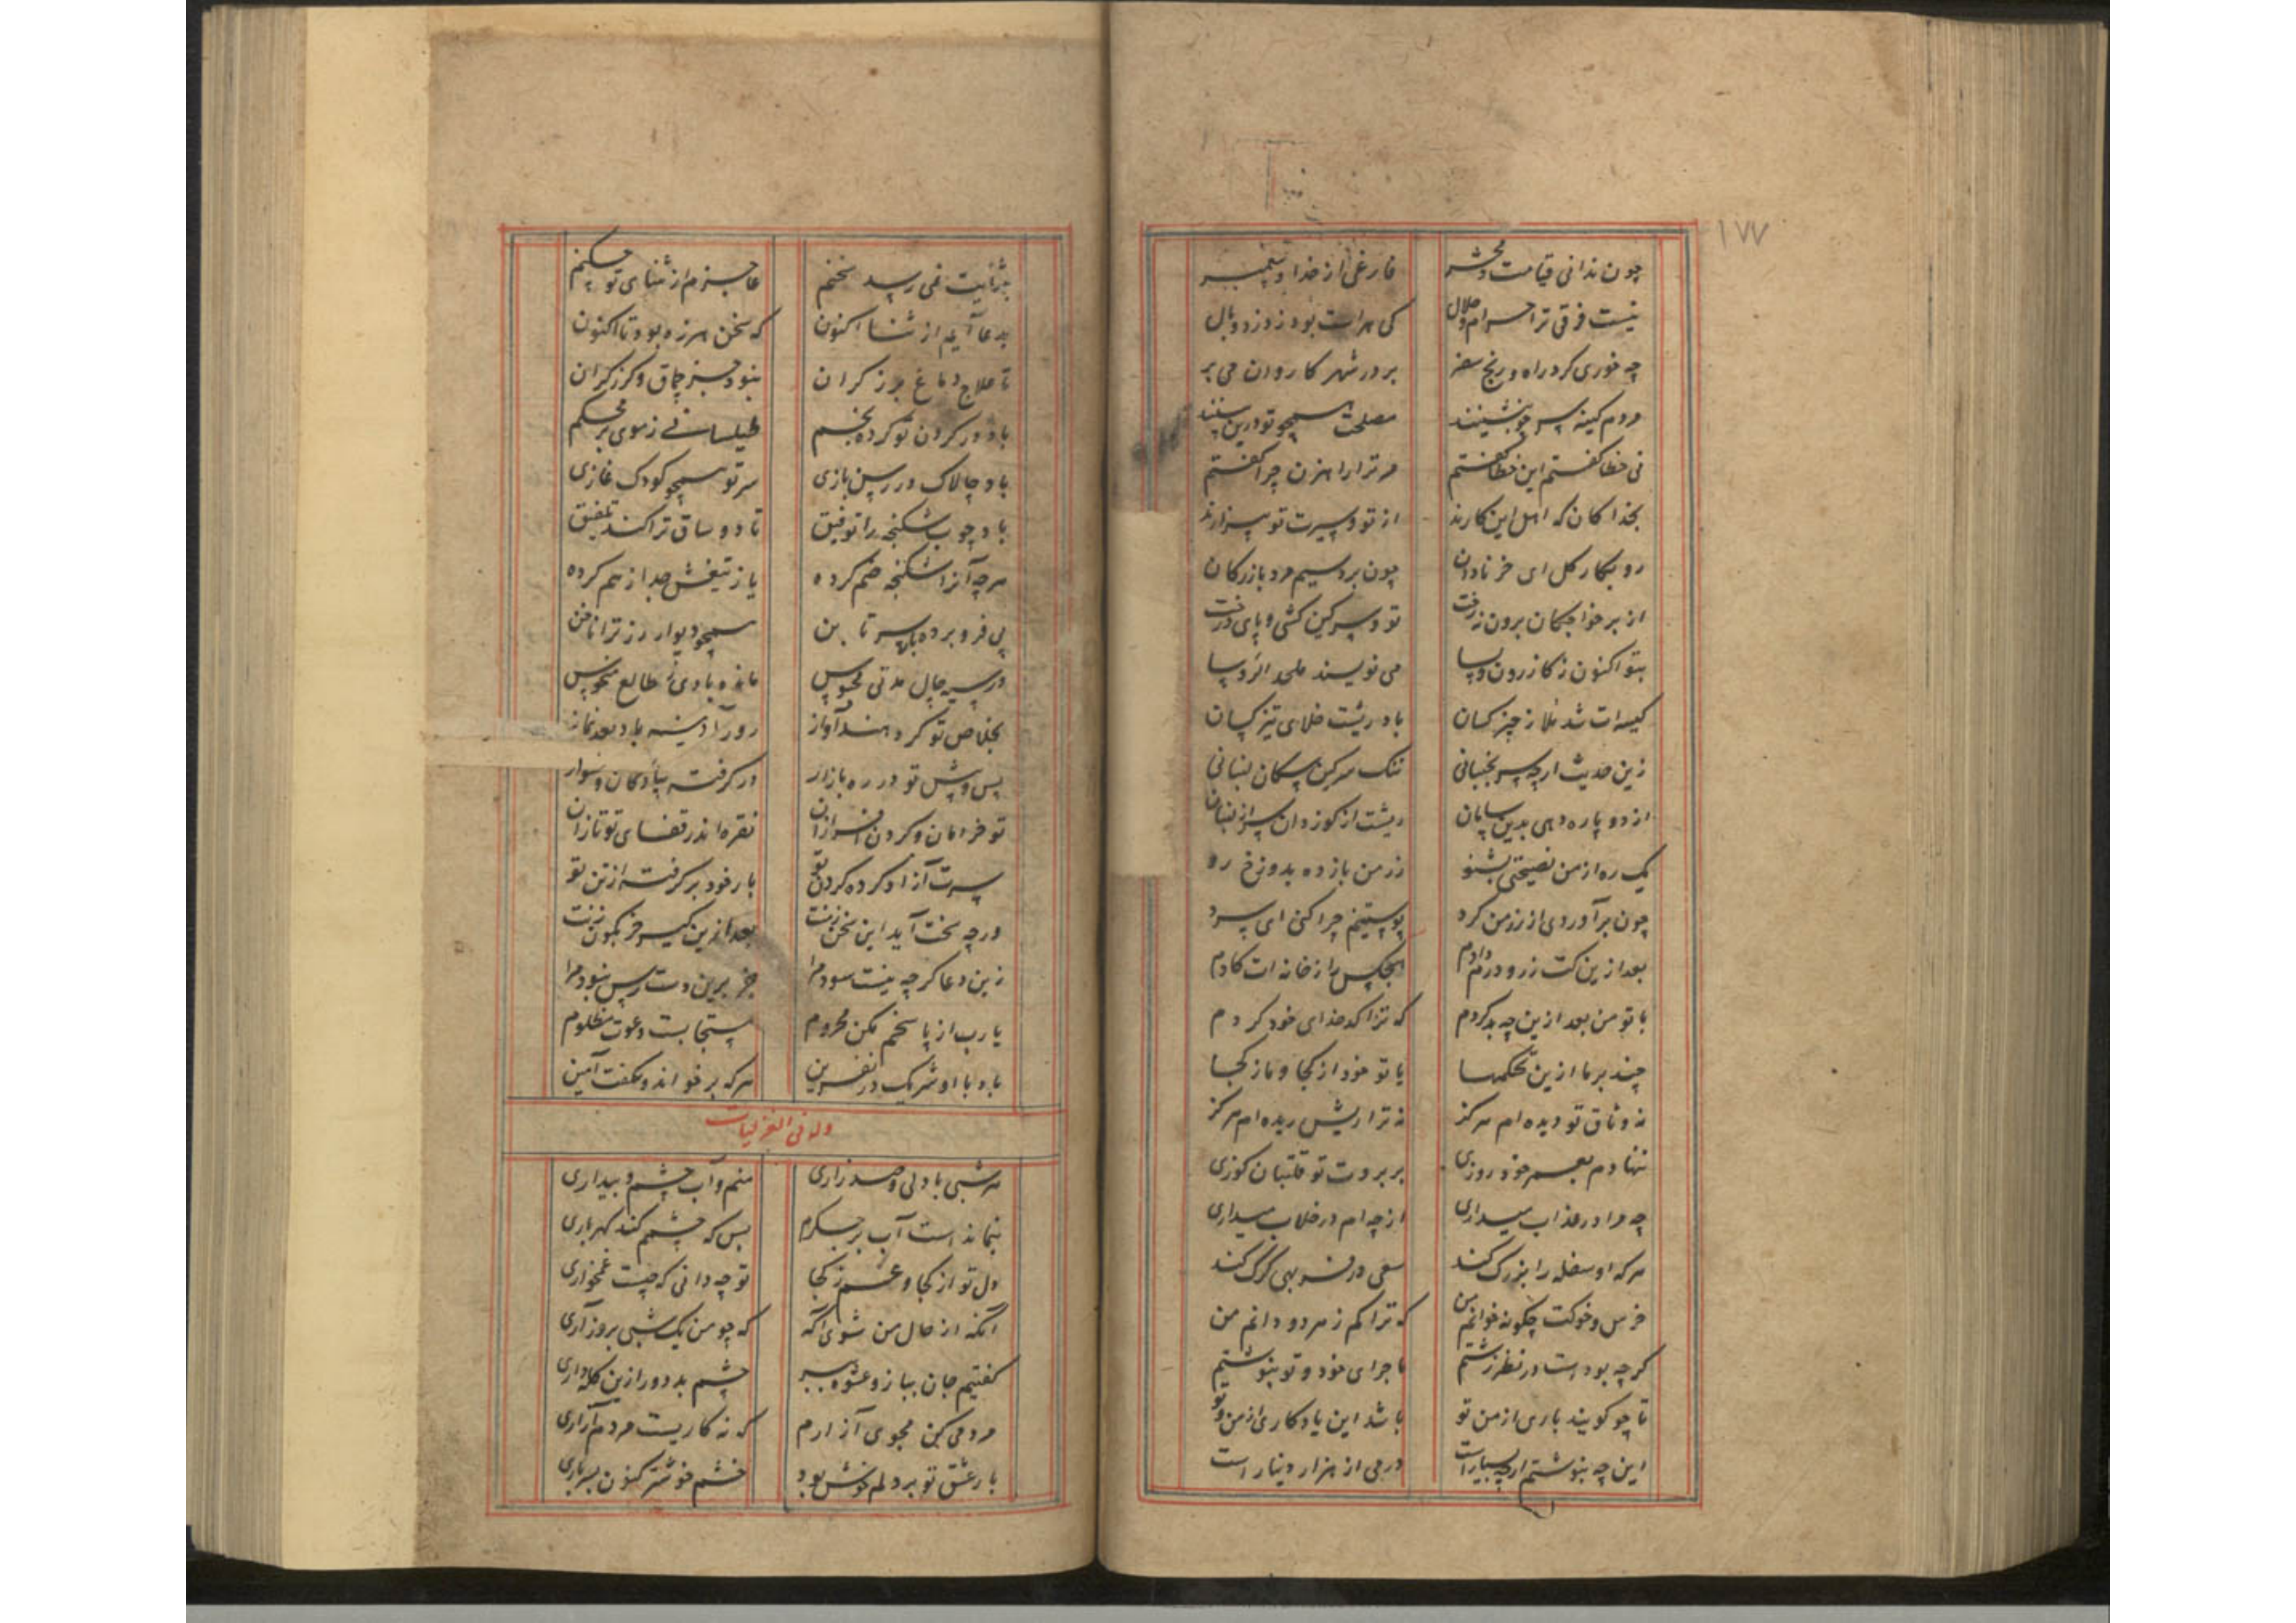 ۱۷۷
چون ندانی قیامت و محشر فارغی از خدا و پیغمبر
نیست فرقی ترا حرام و حلال کی هراست بود ز وزر و وبال
چه خوری گرد راه و رنج سفر بر در شهر کاروان می بر
مردم کینه بسیچو بنشینند مصلحت همچو تو درین بینند
نی خطا گفتم این خطا گفتم مر ترا راهزن چرا گفتم
بخدا کان که اهل این کارند از تو و سیرت تو بیزارند
رو بکار گل ای خر نادان چون بری سیم مرد بازرگان
از بر خواجگان برون نه رخت تو و سرگین کشی و پای درخت
بتو اکنون ز کازرون و پسا می نویسند ملحد الرؤسا
کیسه ات شد ملا ز چیز کسان باد ریشت خلای تیز کسان
زین حدیث ارچه سر بجنبانی ننگ سرگین سگان لنبانی
از دو پاره دهی بدین سامان ریشت از گوز دان
یک ره از من نصیحتی بشنو زر من باز ده بدوزخ رو
چون برآوردی از زر من گرد پوستینم چرا کنی ای سرد
بعد ازین کت زر و درم دادم هیچکس را ز خانه ات گادم
با تو من بعد ازین چه بد کردم که ترا کدخدای خود کردم
چند بر ما ازین تحکمها با تو خود از کجا و ما ز کجا
نه وثاق تو دیده ام هرگز نه ترا ریش ریده ام هرگز
ننهادم بعمر خود روزی بر بروت تو قلتبان گوزی
چه مرا در عذاب میداری از چه ام در خلاب میداری
هر که او سفله را بزرگ کند سعی در فربهی گرگ کند
خرس و خوکت چگونه خوانم من که ترا کم ز هر دو دانم من
گرچه بودست در نظر زشتم ماجرای خود و تو بنوشتم
تا چو گویند باری از من تو باشد این یادگاری از من و تو
این چه بنوشتم ارچه بسیارست درمی از هزار دینارست
بثنایت نمی رسد سخنم عاجزم از ثنای تو چکنم
بدعا آیم از ثنا اکنون که سخن هرزه بود تا اکنون
تا علاج دماغ بر ز گران نبود جز چماق و گرز گران
باد در گردن تو کرده بخم طیلسانی ز موی بز محکم
باد چالاک در رسن بازی سر تو همچو کودک غازی
باد چوب شکنجه را توفیق تا دو ساق ترا کند تلفیق
هرچه آنرا شکنجه ضم کرده باز تیغش جدا ز هم کرده
پی فرو برده باد سر تا بن همچو دیوار رز ترا ناخن
در سیه چال مدتی محبوس مانده بادی ز طالع منحوس
بخلاص تو کرده اند آواز روز آدینه باد بعد نماز
پس و پیش تو در ره بازار در گرفته پیادگان و سوار
تو خرامان و گردن افرازان نقره اندر قفای تو تازان
سرت آزاد کرده گردن تو بار خود برگرفته از تن تو
ورچه سخت آید این سخن زنت بعد ازین
زین دعا گرچه نیست سود مرا جز برین دست رس نبود مرا
یا رب از پاسخم مکن محروم مستجابست دعوت مظلوم
باد با او شریک در نفرین هر که بر خواند و نگفت آمین
وله فی الغزلیات
هر شبی با دلی و صد زاری منم و آب چشم و بیداری
بنماندست آب بر جگرم بس که چشمم کند گهرباری
دل تو از کجا و غم ز کجا تو چه دانی که چیست غمخواری
آنگه از حال من شوی آگه که چو من یک شبی بروز آری
گفتیم جان بباز و عشوه بخر چشم بد دور ازین کله داری
مردمی کن مجوی آزارم که نه کاریست مردم آزاری
بار عشق تو بر دلم خوش بود خشم خوشتر کنون بسرباری